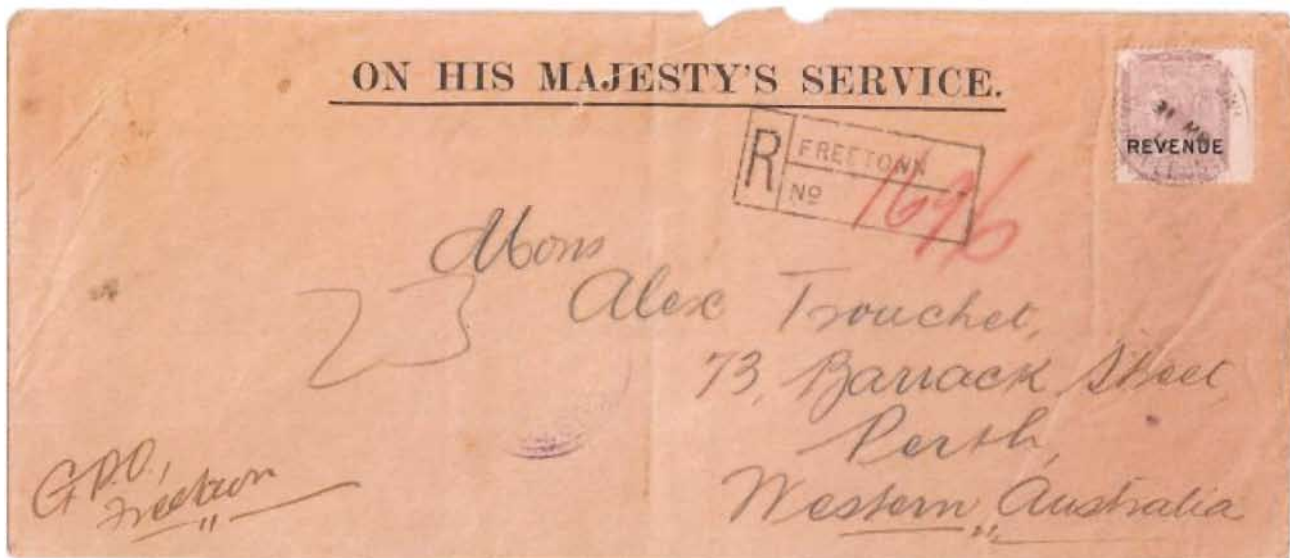 ON HIS MAJESTY'S SERVICE.
REVENUE
R FREETOWN
No 1696
Mons
Alex Trouchet,
73, Barrack Street,
Perth,
Western Australia
23
G.P.O.,
Freetown